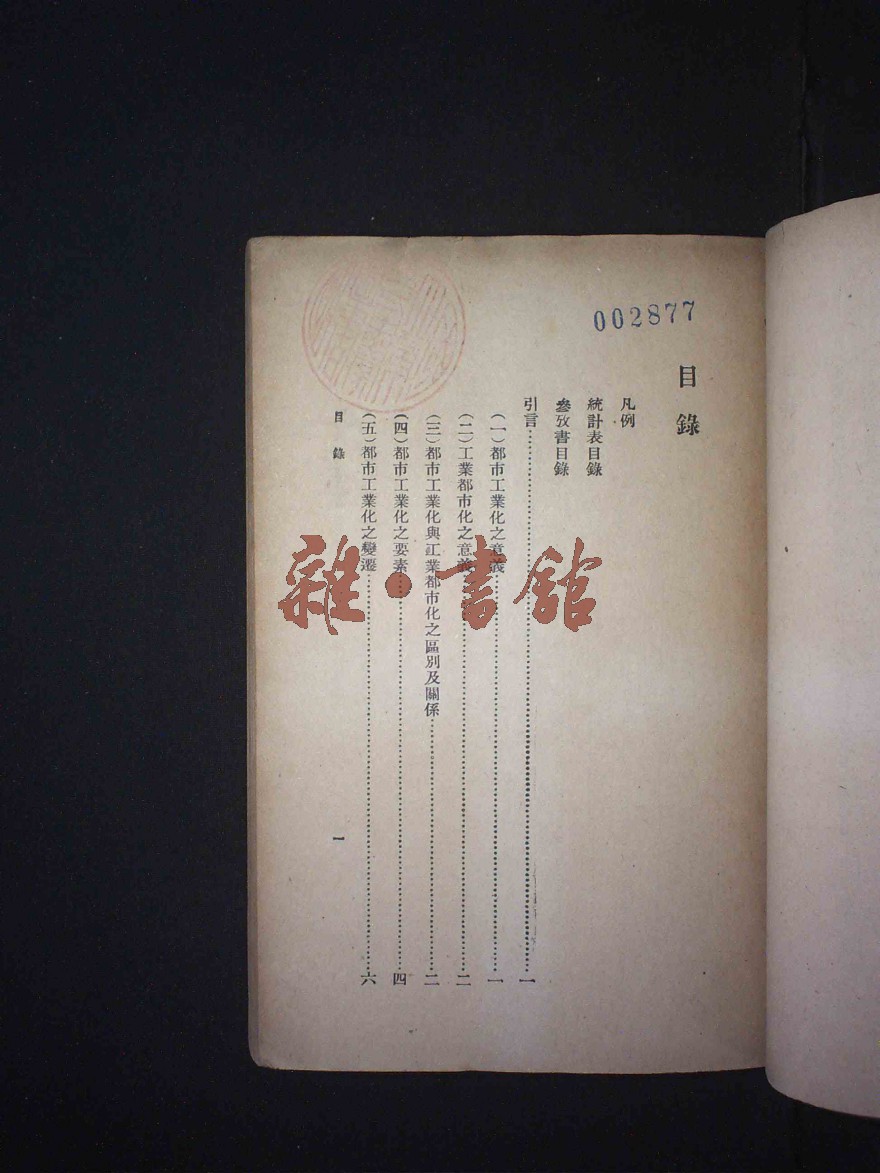 002877
目錄
凡例
統計表目錄
參攷書目錄
引言……一
(一)都市工業化之意義……一
(二)工業都市化之意義……二
(三)都市工業化與江業都市化之區別及關係……二
(四)都市工業化之要素……四
(五)都市工業化之變遷……六
目錄
一
雜·書館